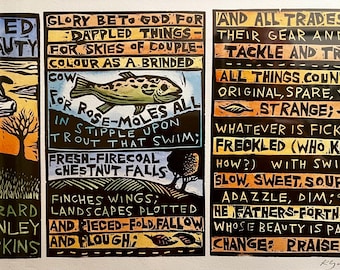 ED
AUTY
ARD
NLEY
KINS
GLORY BE TO GOD FOR
DAPPLED THINGS-
FOR SKIES OF COUPLE-
COLOUR AS A BRINDED
COW
FOR ROSE-MOLES ALL
IN STIPPLE UPON
TROUT THAT SWIM;
FRESH-FIRECOAL
CHESTNUT FALLS
FINCHES WINGS;
LANDSCAPES PLOTTED
AND PIECED-FOLD, FALLOW
AND PLOUGH;
AND ALL TRADES
THEIR GEAR AND
TACKLE AND TR
ALL THINGS COUN
ORIGINAL, SPARE,
STRANGE;
WHATEVER IS FICK
FRECKLED (WHO K
HOW?) WITH SWI
SLOW, SWEET, SOU
ADAZZLE, DIM;
HE FATHERS-FORTH
WHOSE BEAUTY IS PA
CHANGE: PRAISE